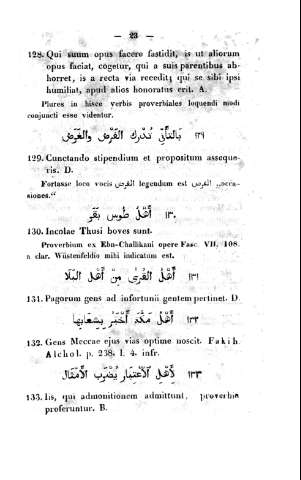 — 23 —
128. Qui suum opus facere fastidit, is ut aliorum
opus faciat, cogetur, qui a suis parentibus ab-
horret, is a recta via recedit; qui se sibi ipsi
humiliat, apud alios honoratus erit. A.
Plures in hisce verbis proverbiales loquendi modi
conjuncti esse videntur.
١٢٩ بِالتَّأَنِّي تُدْرَكُ القَرْضُ والغَرَضُ
129. Cunctando stipendium et propositum assequo-
ris. D.
Fortasse loco vocis القرض legendum est الفرص „occa-
siones.“
١٣٠ أَهْلُ طُوسَ بَقَر
130. Incolae Thusi boves sunt.
Proverbium ex Ebn-Challikani opere Fasc. VII. 108.
a clar. Wüstenfeldio mihi indicatum est.
١٣١ أَهْلُ القُرَى مِنْ أَهْلِ البَلَا
131. Pagorum gens ad infortunii gentem pertinet. D.
١٣٢ أَهْلُ مَكَّةَ أَخْبَرُ بِشِعَابِهَا
132. Gens Meccae ejus vias optime noscit. Fakih.
Alchol. p. 238. l. 4. infr.
١٣٣ لِأَهْلِ الاعْتِبَارِ يُضْرَبُ الأَمْثَالُ
133. Iis, qui admonitionem admittunt, proverbia
proferuntur. B.